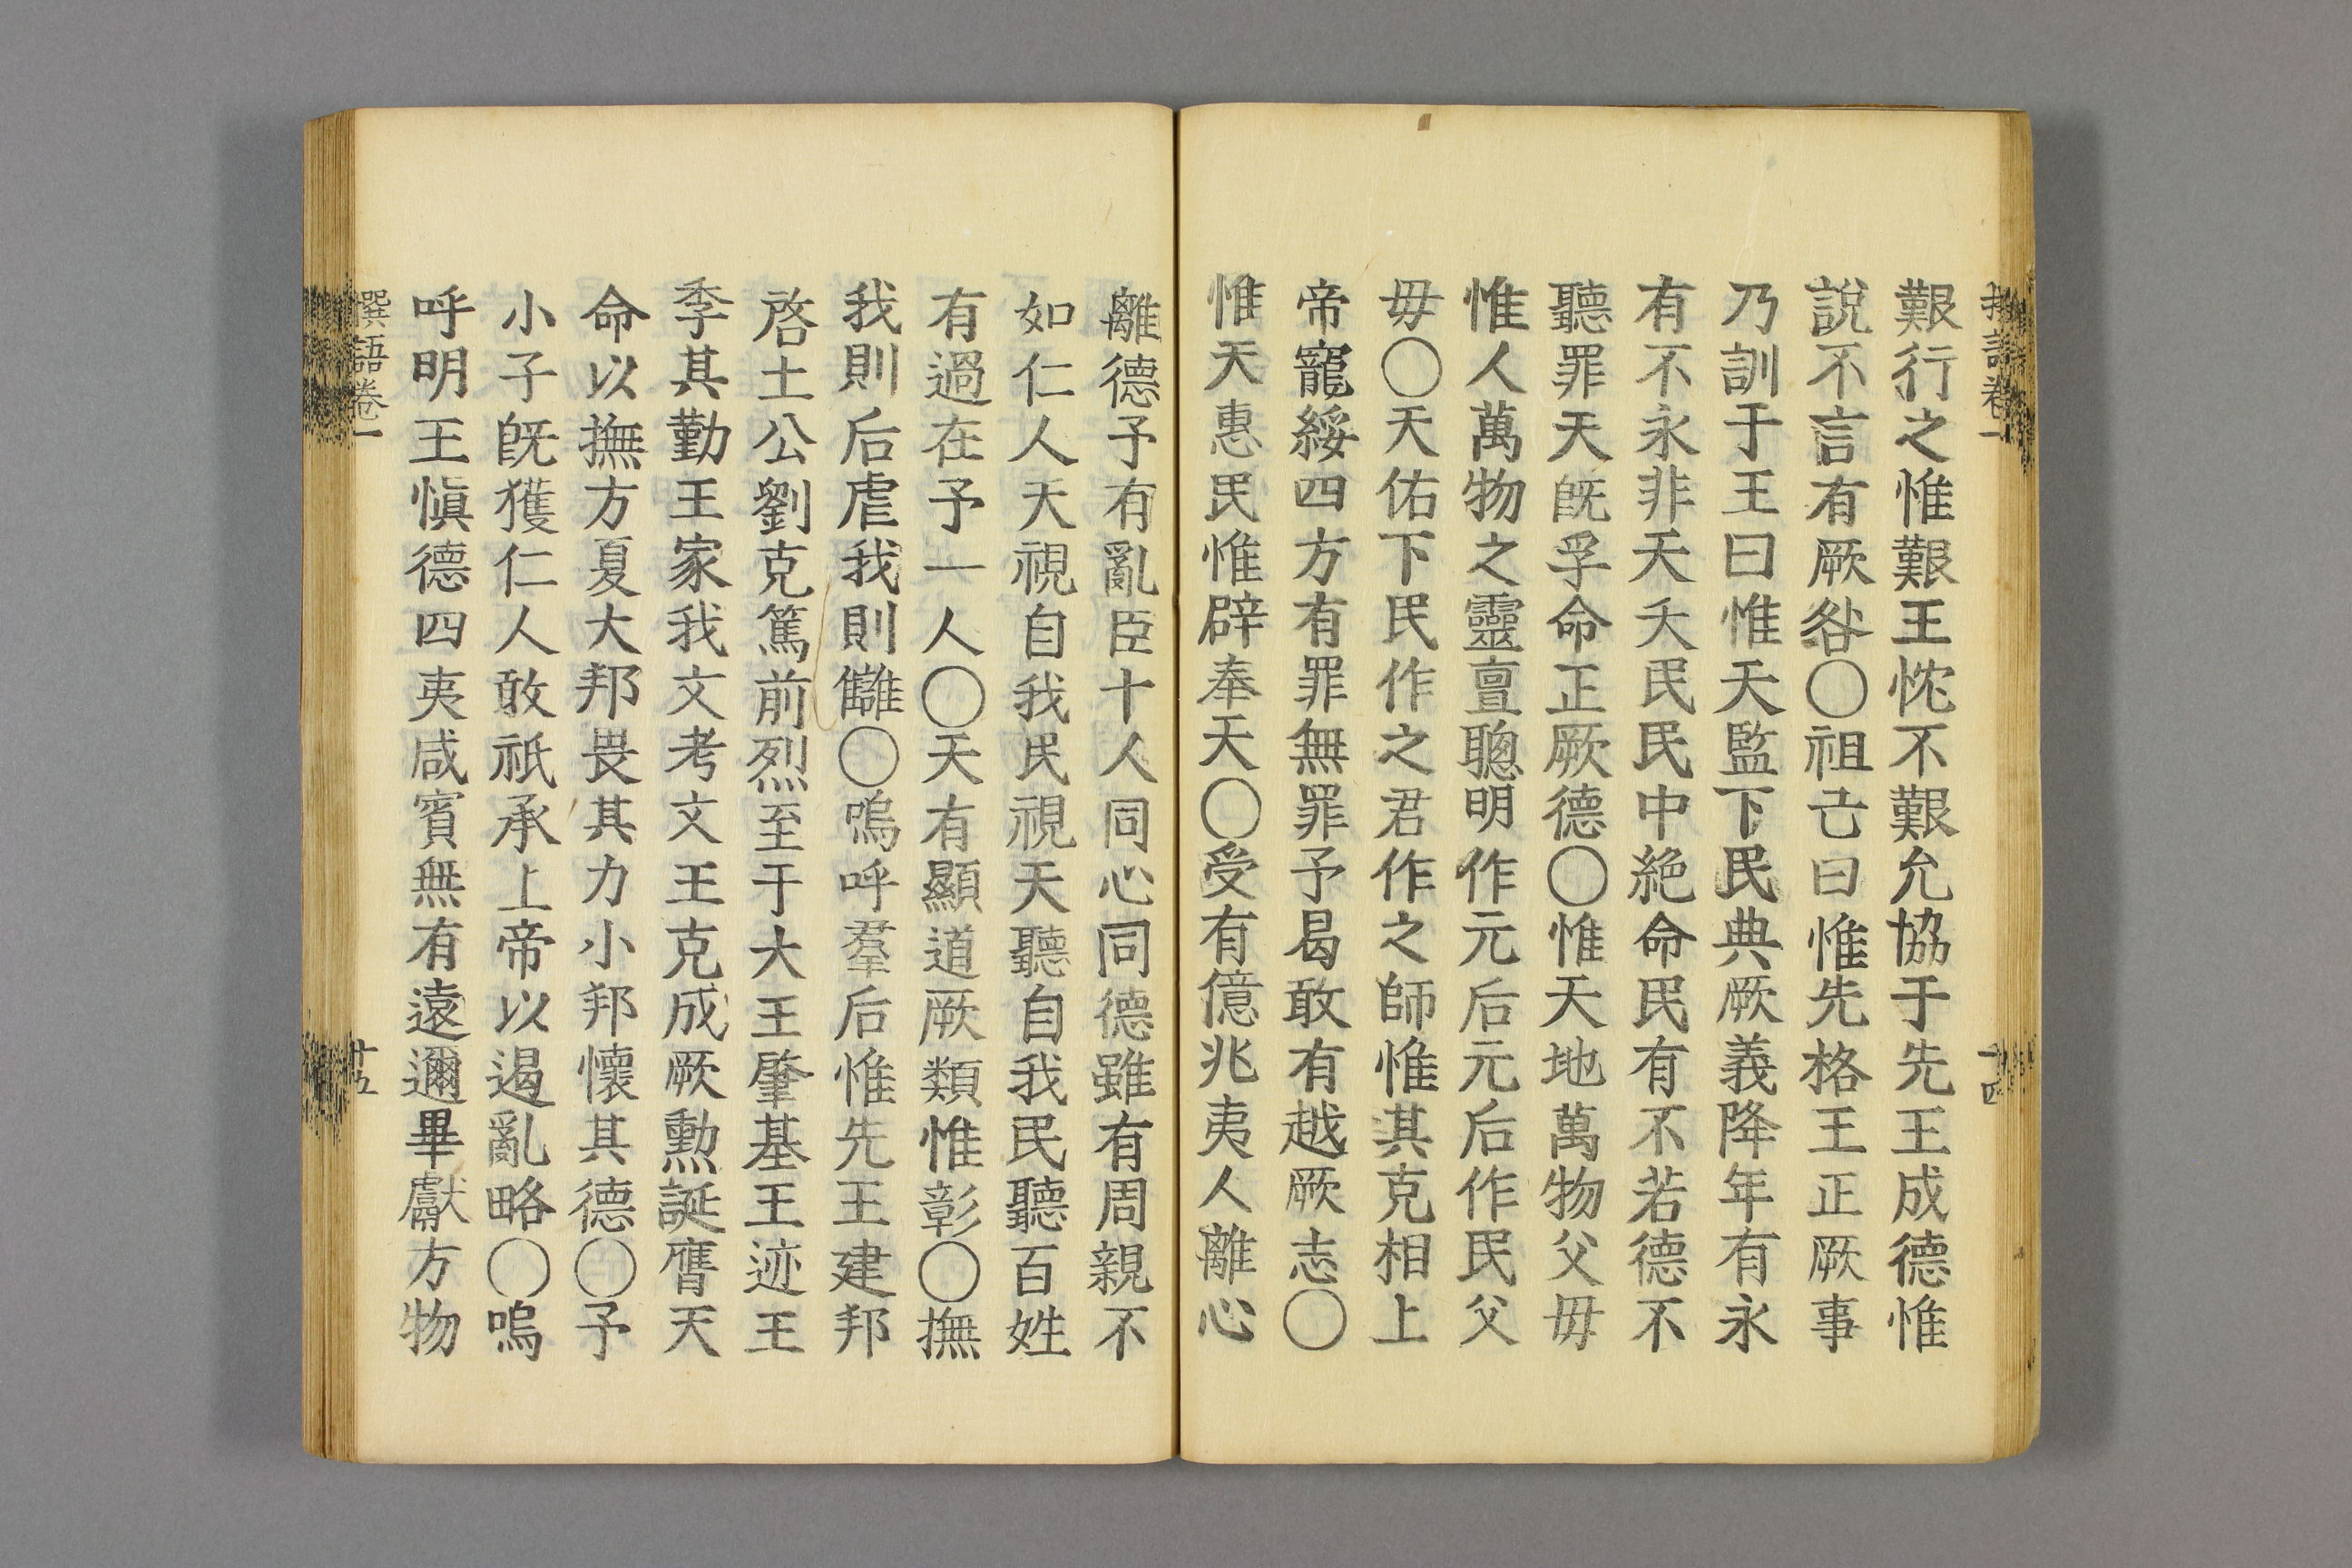 撰語卷一
十四
艱行之惟艱王忱不艱允協于先王成德惟
說不言有厥咎〇祖己曰惟先格王正厥事
乃訓于王曰惟天監下民典厥義降年有永
有不永非天夭民民中絶命民有不若德不
聽罪天旣孚命正厥德〇惟天地萬物父毋
惟人萬物之靈亶聰明作元后元后作民父
毋〇天佑下民作之君作之師惟其克相上
帝寵綏四方有罪無罪予曷敢有越厥志〇
惟天惠民惟辟奉天〇受有億兆夷人離心
離德予有亂臣十人同心同德雖有周親不
如仁人天視自我民視天聽自我民聽百姓
有過在予一人〇天有顯道厥類惟彰〇撫
我則后虐我則讎〇嗚呼羣后惟先王建邦
啓土公劉克篤前烈至于大王肇基王迹王
季其勤王家我文考文王克成厥勳誕膺天
命以撫方夏大邦畏其力小邦懷其德〇予
小子旣獲仁人敢祇承上帝以遏亂略〇嗚
呼明王愼德四夷咸賓無有遠邇畢獻方物
撰語卷一
十五